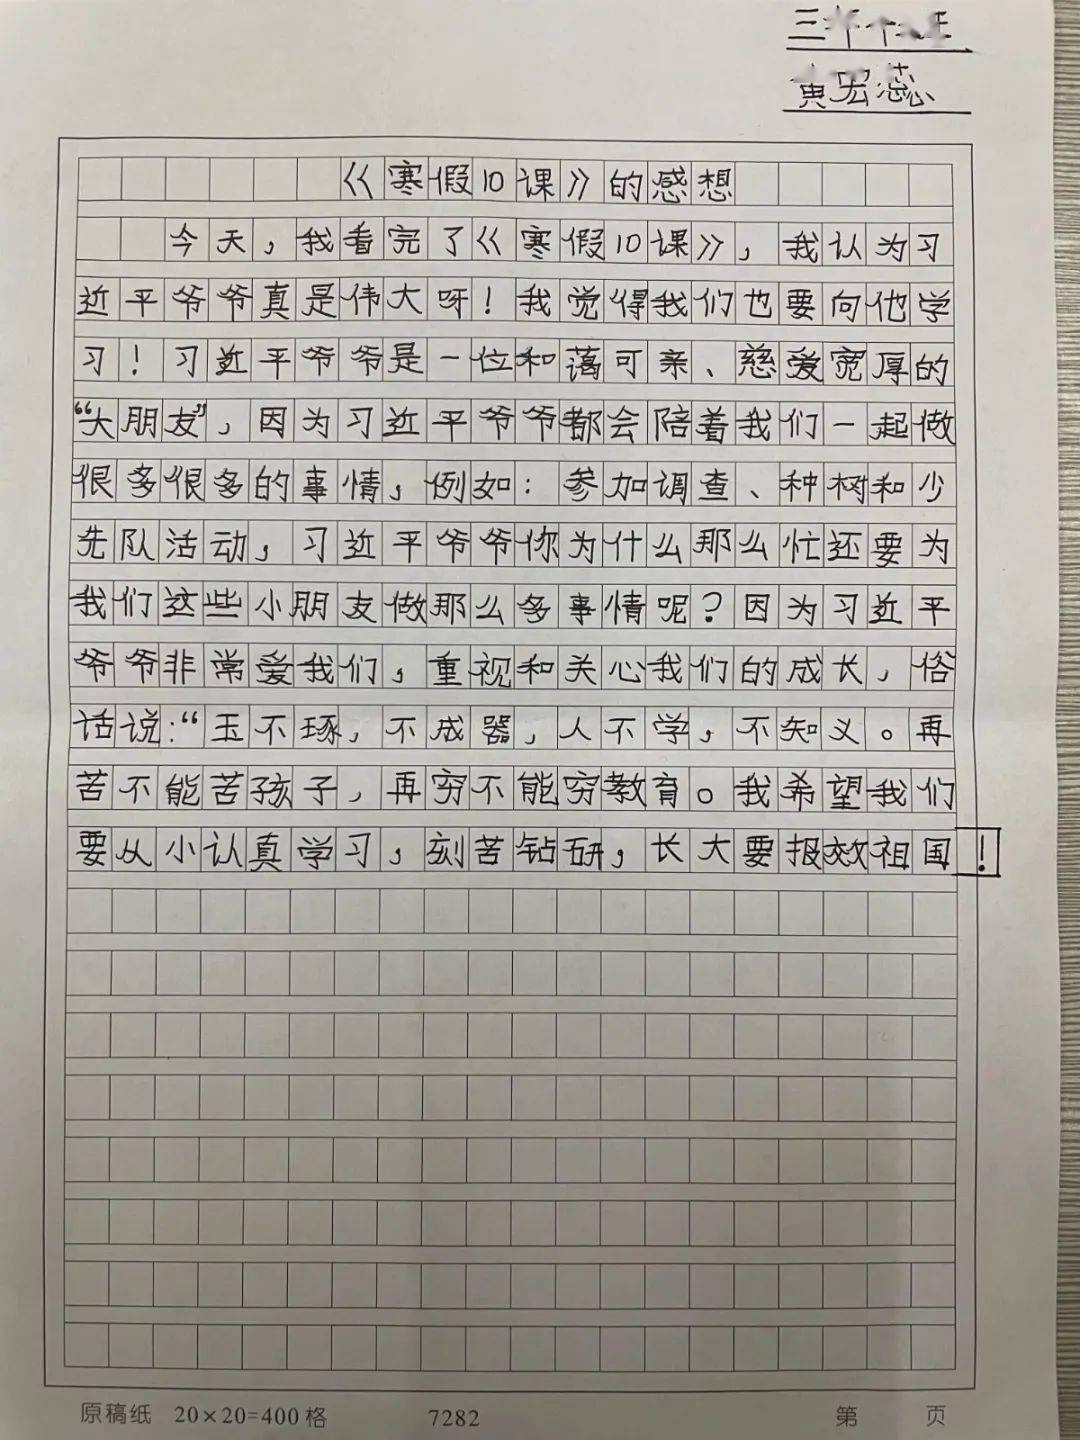 三年十
黄宏蕊
《寒假10课》的感想
今天，我看完了《寒假10课》，我认为习
近平爷爷真是伟大呀！我觉得我们也要向他学
习！习近平爷爷是一位和蔼可亲、慈爱宽厚的
“大朋友”，因为习近平爷爷都会陪着我们一起做
很多很多的事情，例如：参加调查、种树和少
先队活动，习近平爷爷你为什么那么忙还要为
我们这些小朋友做那么多事情呢？因为习近平
爷爷非常爱我们，重视和关心我们的成长，俗
话说：“玉不琢，不成器，人不学，不知义。再
苦不能苦孩子，再穷不能穷教育。我希望我们
要从小认真学习，刻苦钻研，长大要报效祖国！
原稿纸 20×20=400格 7282 第 页